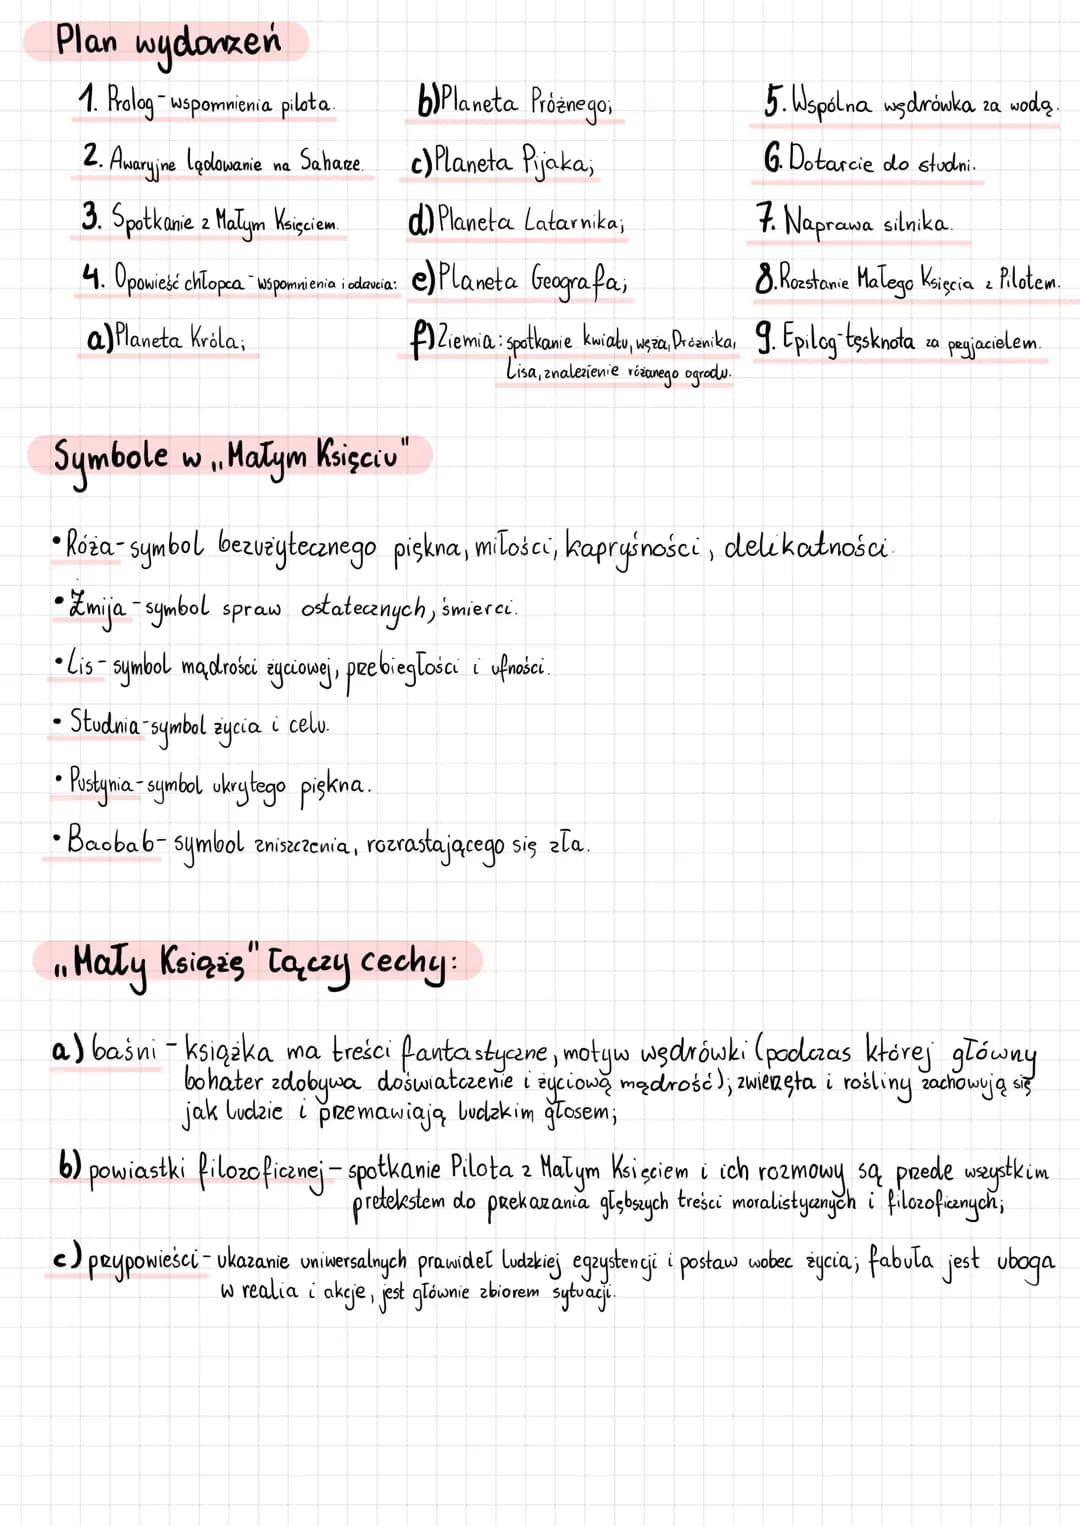 Plan wydarzeń
1. Prolog - wspomnienia pilota.
2. Awaryjne lądowanie na Saharze.
3. Spotkanie z Małym Księciem.
4. Opowieść chłopca - wspomnienia i odczucia:
a) Planeta Króla;
b) Planeta Próżnego;
c) Planeta Pijaka;
d) Planeta Latarnika;
e) Planeta Geografa;
f) Ziemia: spotkanie kwiatu, węża, Dróżnika,
Lisa, znalezienie różanego ogrodu.
5. Wspólna wędrówka za wodą.
6. Dotarcie do studni.
7. Naprawa silnika.
8. Rozstanie Małego Księcia z Pilotem.
9. Epilog - tęsknota za przyjacielem.
Symbole w „Małym Księciu"
• Róża - symbol bezużytecznego piękna, miłości, kapryśności, delikatności.
• Żmija - symbol spraw ostatecznych, śmierci.
• Lis - symbol mądrości życiowej, przebiegłości i ufności.
• Studnia - symbol życia i celu.
• Pustynia - symbol ukrytego piękna.
• Baobab - symbol zniszczenia, rozrastającego się zła.
„Mały Książę" łączy cechy:
a) baśni - książka ma treści fantastyczne, motyw wędrówki (podczas której główny
bohater zdobywa doświatczenie i życiową mędrość); zwierzęta i rośliny zachowują się
jak ludzie i przemawiają ludzkim głosem;
b) powiastki filozoficznej - spotkanie Pilota z Małym Księciem i ich rozmowy są przede wszystkim
pretekstem do przekazania głębszych treści moralistycznych i filozoficznych;
c) przypowieści - ukazanie uniwersalnych prawideł ludzkiej egzystencji i postaw wobec życia; fabuła jest uboga
w realia i akcje, jest głównie zbiorem sytuacji.